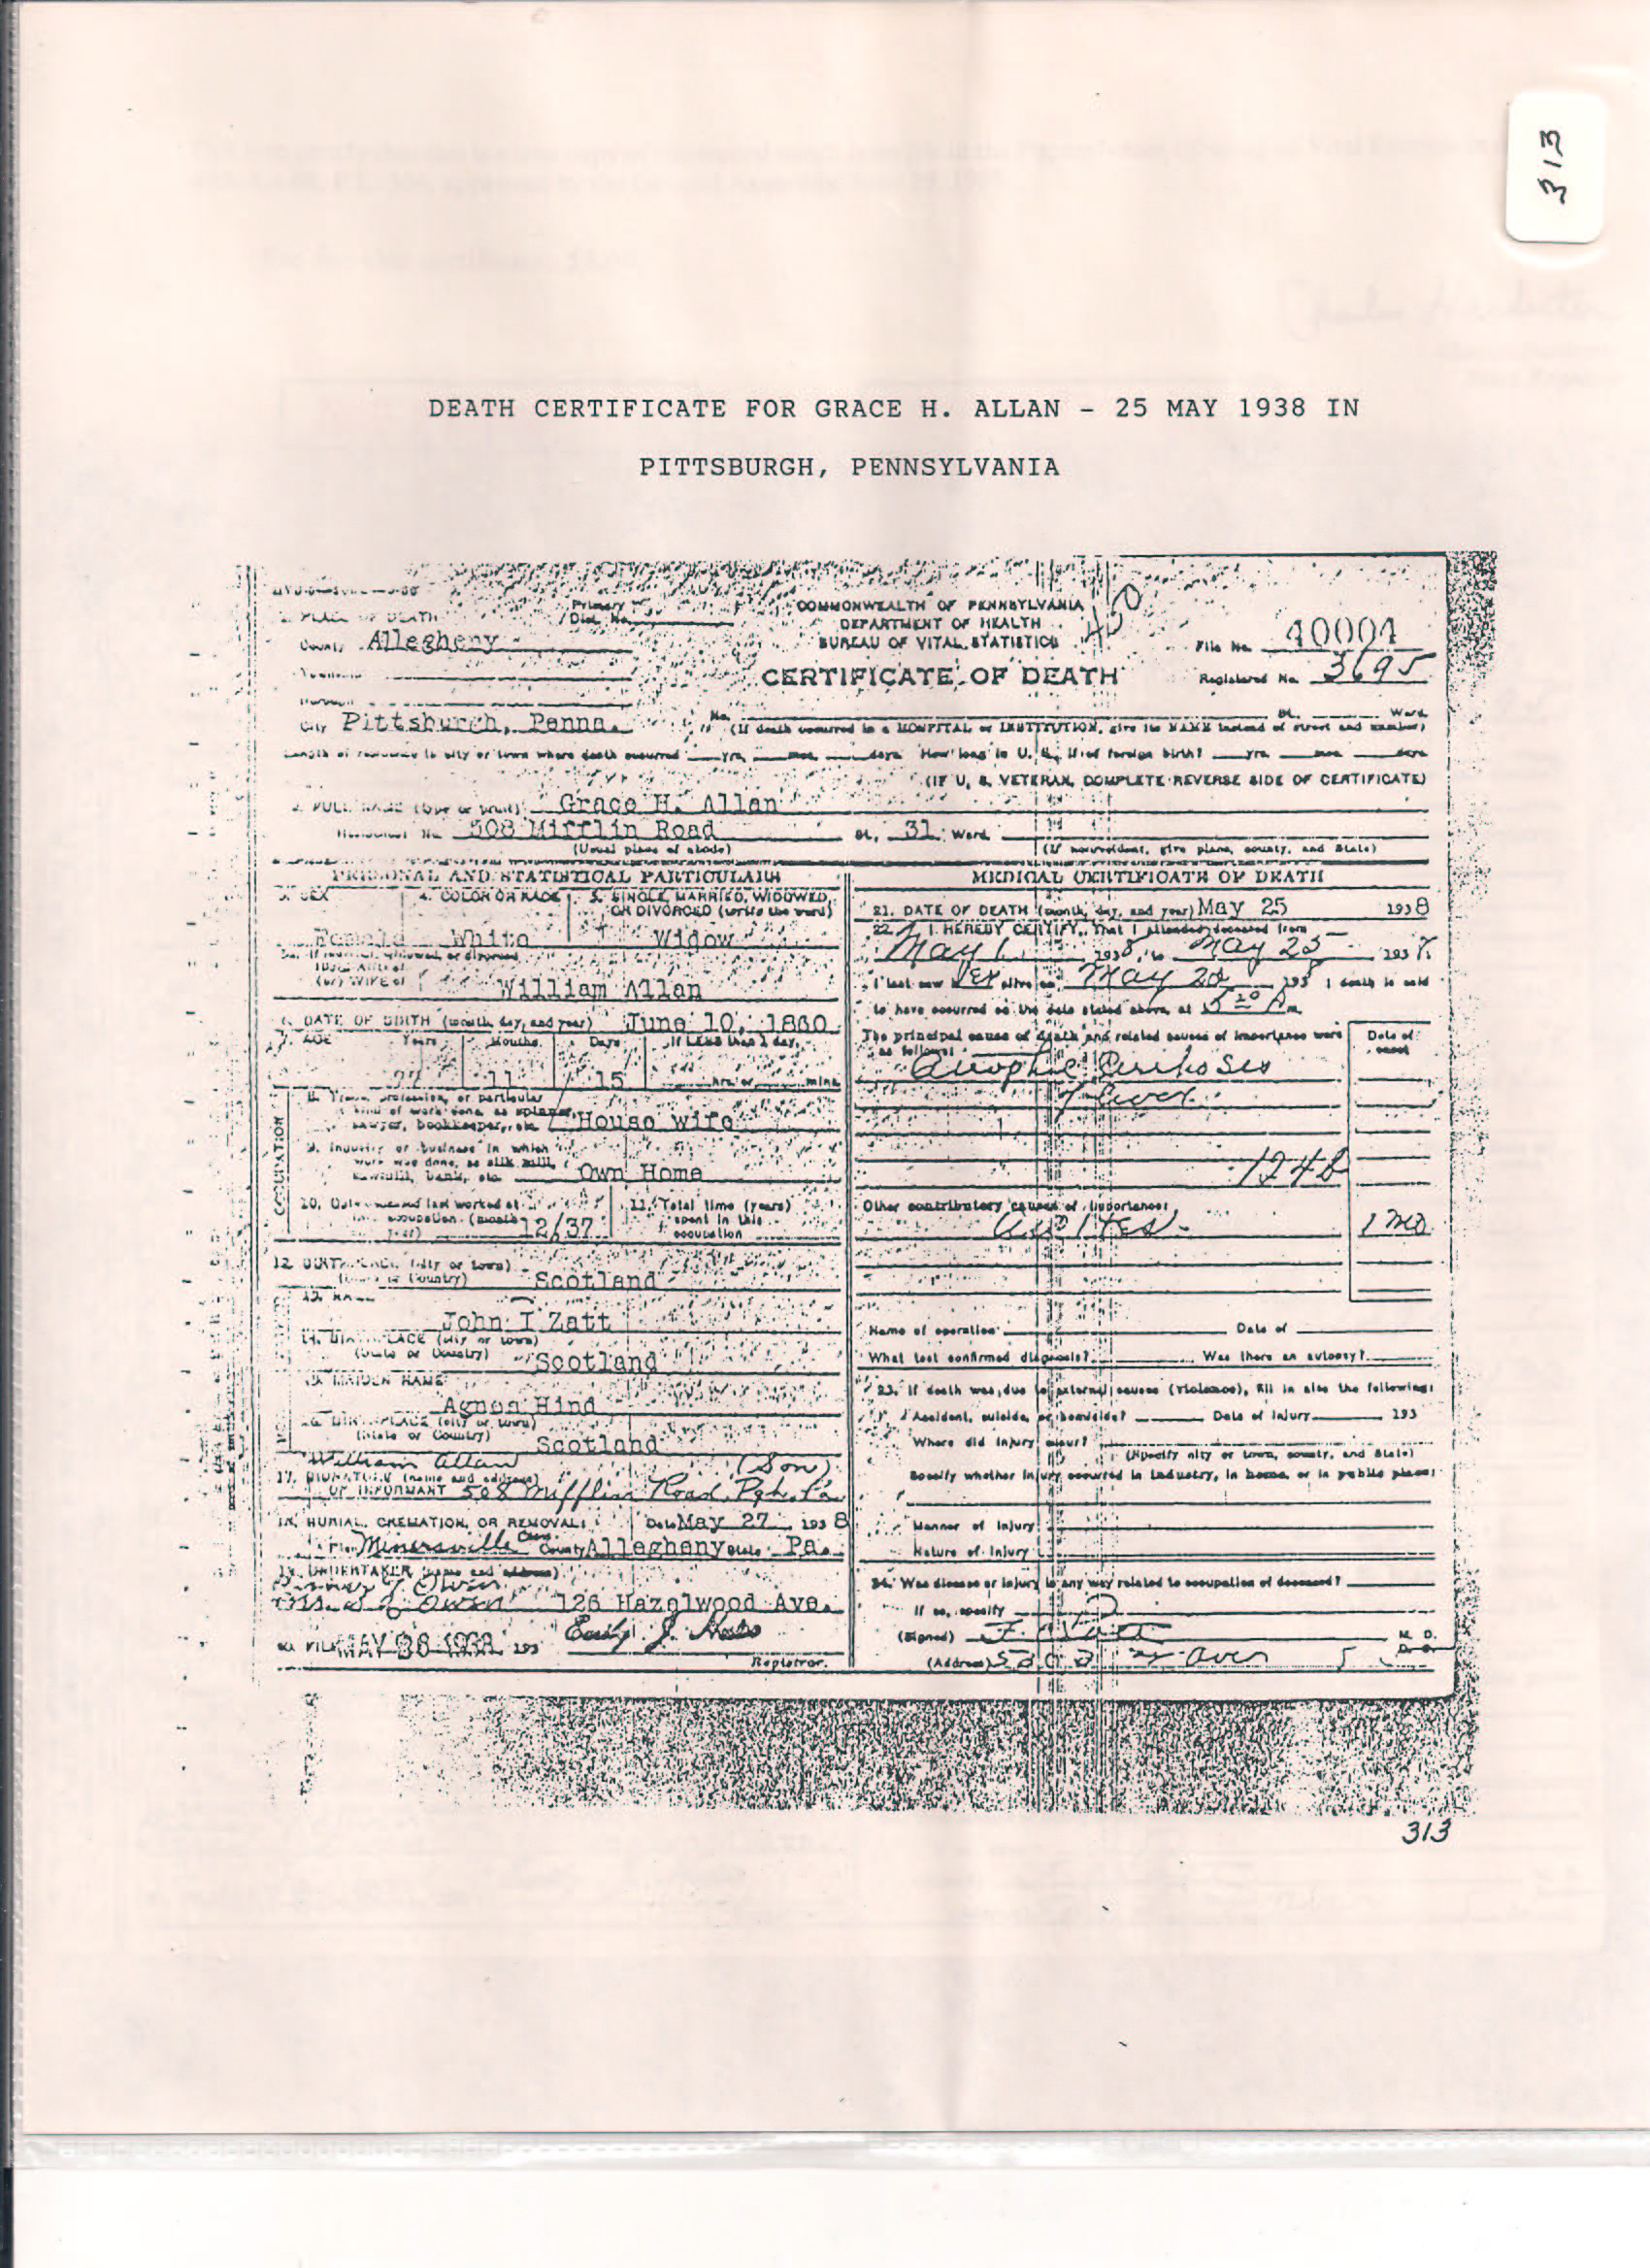 313
DEATH CERTIFICATE FOR GRACE H. ALLAN - 25 MAY 1938 IN
PITTSBURGH, PENNSYLVANIA
1. PLACE OF DEATH
Primary
Dist. No.
COMMONWEALTH OF PENNSYLVANIA
DEPARTMENT OF HEALTH
BUREAU OF VITAL STATISTICS
County Allegheny
File No. 40004
CERTIFICATE OF DEATH
Registered No. 3695
City Pittsburgh, Penna.
No. St. Ward
(If death occurred in a HOSPITAL or INSTITUTION, give its NAME instead of street and number)
Length of residence in city or town where death occurred yrs. mos. days. How long in U. S., if of foreign birth? yrs. mos. days
(IF U. S. VETERAN, COMPLETE REVERSE SIDE OF CERTIFICATE)
2. FULL NAME (type or print) Grace H. Allan
Residence No. 508 Mifflin Road St., 31 Ward
(Usual place of abode) (If nonresident, give place, county, and State)
PERSONAL AND STATISTICAL PARTICULARS
3. SEX 4. COLOR OR RACE 5. SINGLE, MARRIED, WIDOWED, OR DIVORCED (write the word)
Female White Widow
5a. If married, widowed, or divorced
(or) WIFE of William Allan
6. DATE OF BIRTH (month, day, and year) June 10, 1860
7. AGE Years Months Days If LESS than 1 day,
77 11 15 hrs. or mins.
OCCUPATION
8. Trade, profession, or particular
kind of work done, as spinner,
sawyer, bookkeeper, etc. House wife
9. Industry or business in which
work was done, as silk mill,
sawmill, bank, etc. Own Home
10. Date deceased last worked at
this occupation (month
year) 12/37
11. Total time (years)
spent in this
occupation
12. BIRTHPLACE (city or town)
(State or Country) Scotland
13. NAME
John I Zatt
14. BIRTHPLACE (city or town)
(State or Country) Scotland
15. MAIDEN NAME
Agnes Hind
16. BIRTHPLACE (city or town)
(State or Country) Scotland
William Allan (Son)
17. SIGNATURE (name and address)
OF INFORMANT 508 Mifflin Road, Pgh. Pa
18. BURIAL, CREMATION, OR REMOVAL: Date May 27 1938
Place Minersville Cem. County Allegheny State Pa.
19. UNDERTAKER (name and address)
Owen 126 Hazelwood Ave.
20. FILED MAY 193
Registrar.
MEDICAL CERTIFICATE OF DEATH
21. DATE OF DEATH (month, day, and year) May 25 1938
22. I HEREBY CERTIFY, That I attended deceased from
May 1 1938, to May 25 1938
I last saw her alive on May 1938 death is said
to have occurred on the date stated above at 5 20 A m.
The principal cause of death and related causes of importance were
as follows:
Date of
onset
Atrophic Cirrhosis
of liver
124b
Other contributory causes of importance:
Ascites 1 mo
Name of operation Date of
What test confirmed diagnosis? Was there an autopsy?
23. If death was due to external causes (violence), fill in also the following:
Accident, suicide, or homicide? Date of injury 193
Where did injury occur?
(Specify city or town, county, and State)
Specify whether injury occurred in industry, in home, or in public place:
Manner of Injury
Nature of Injury
24. Was disease or injury in any way related to occupation of deceased?
If so, specify
(Signed) M. D.
(Address)
313